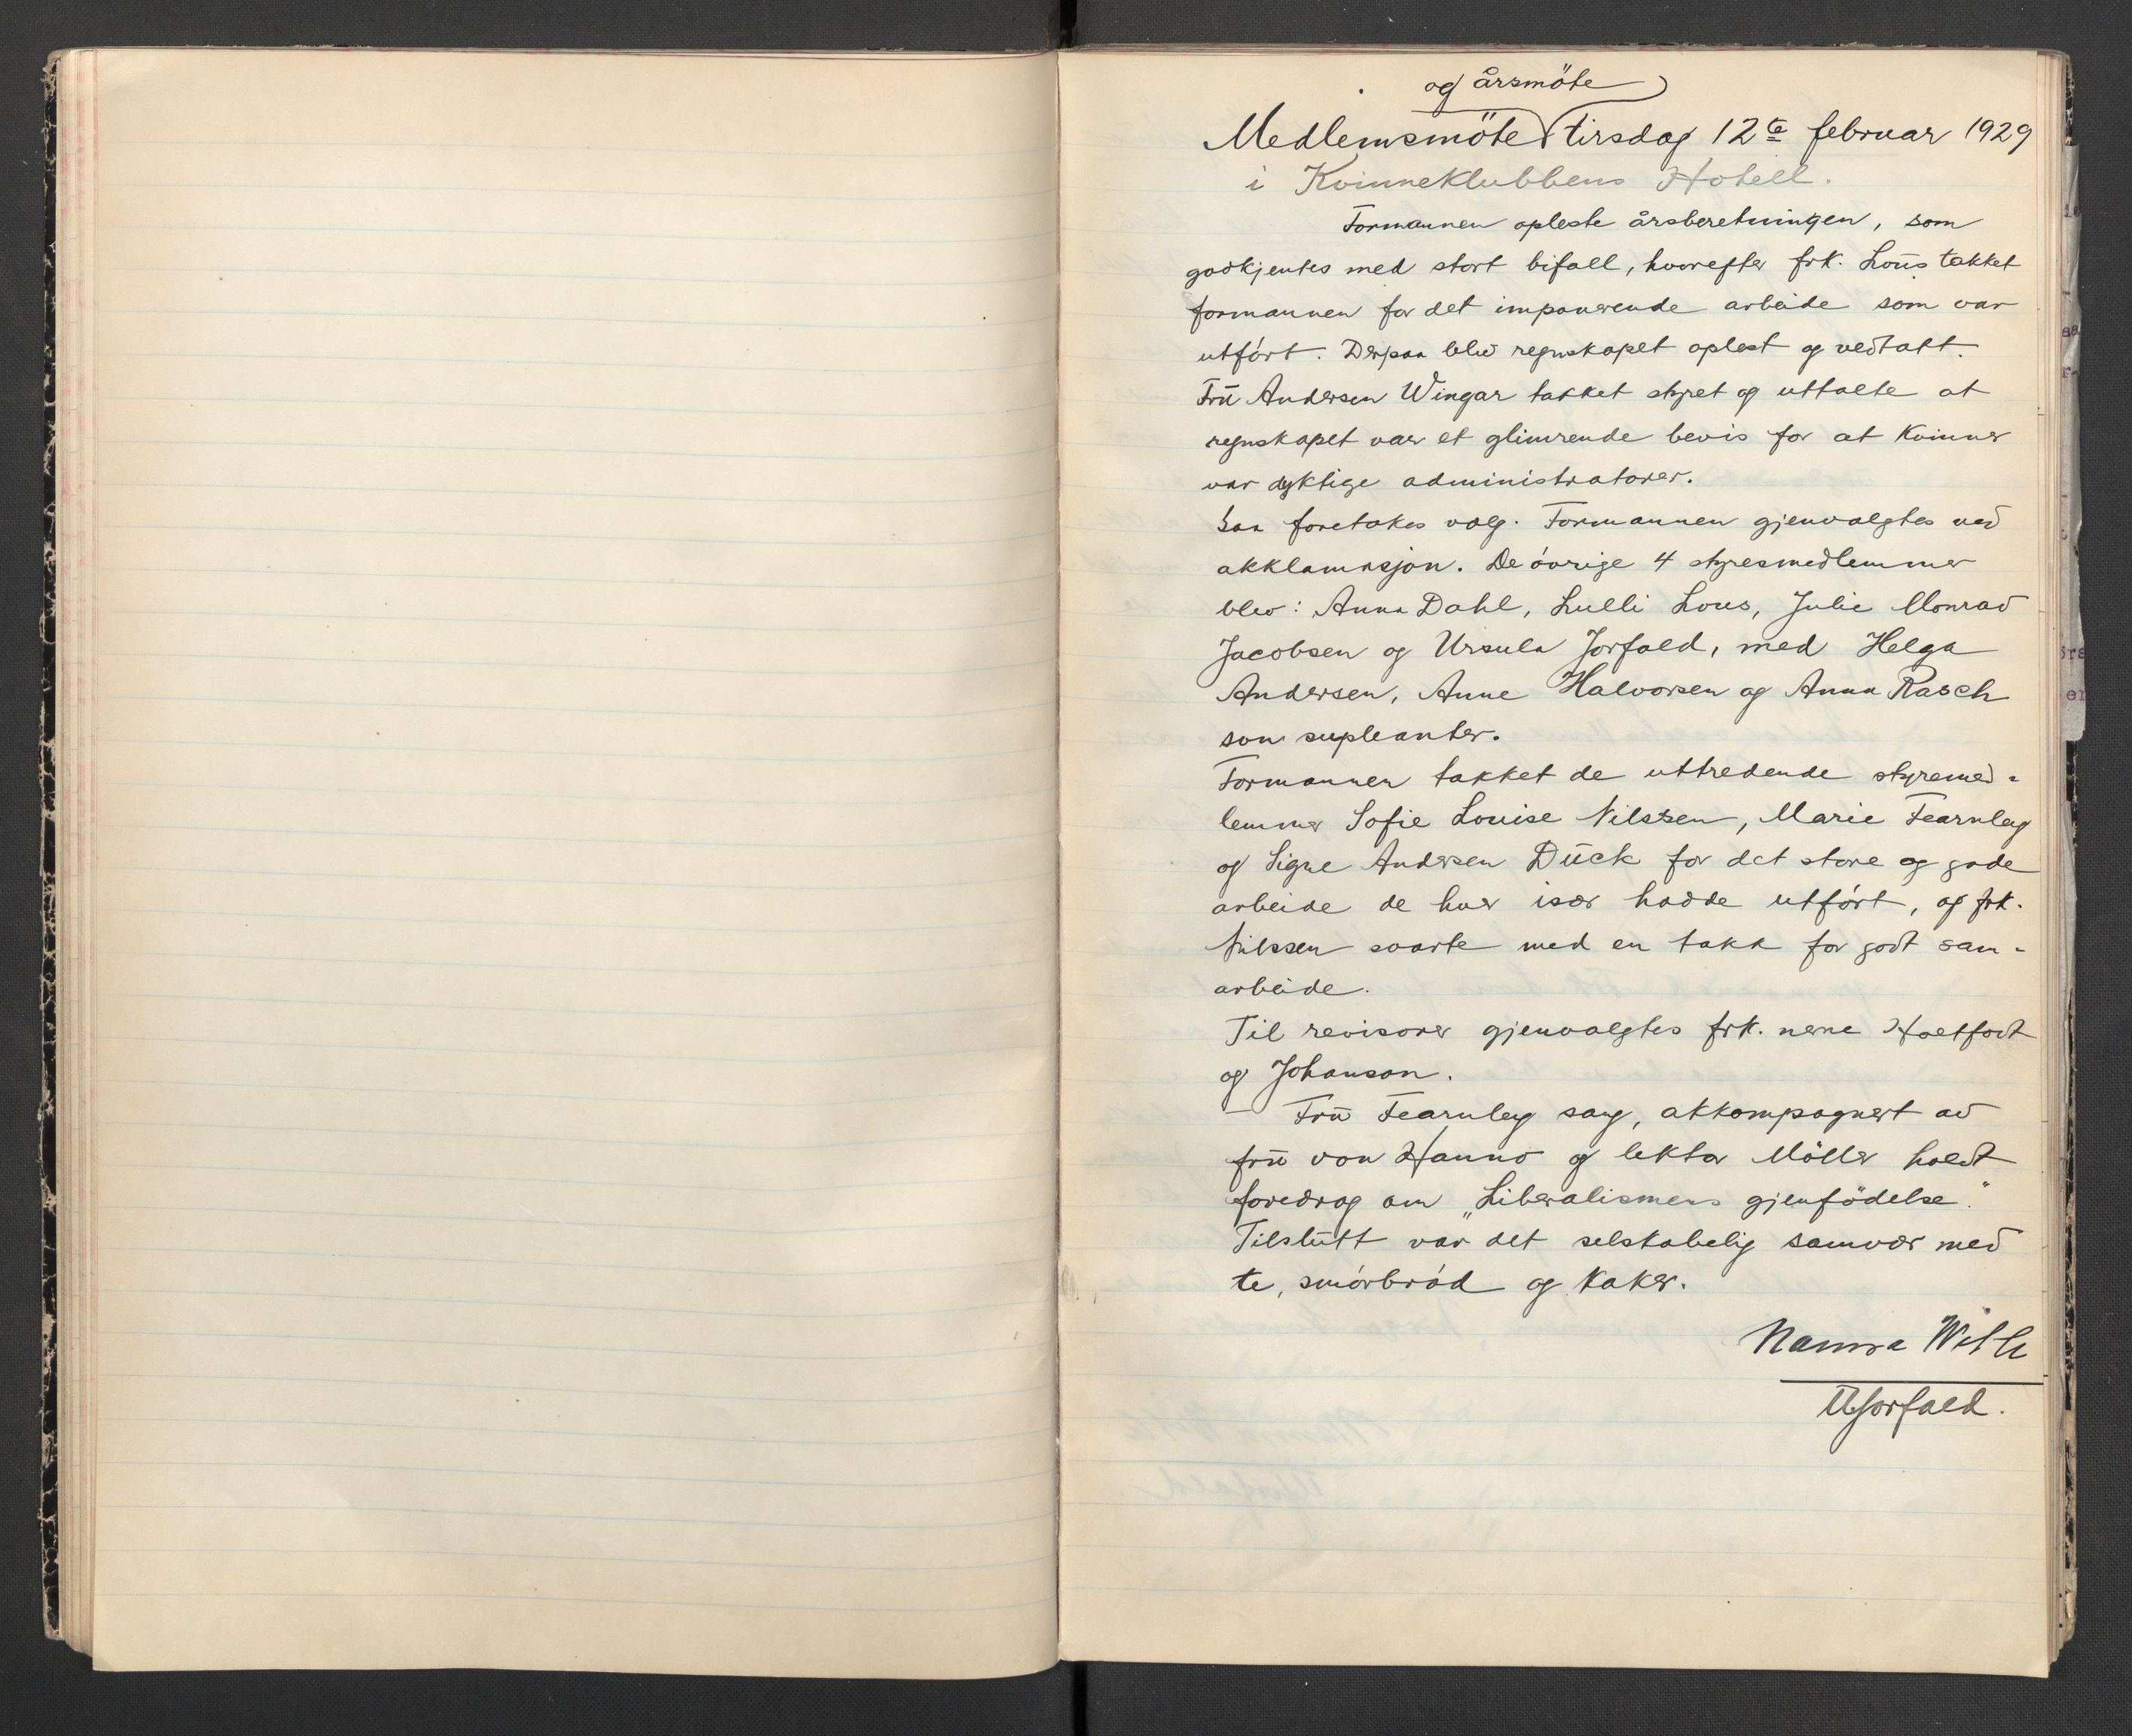 og årsmöte
Medlemsmöte tirsdag 12te februar 1929
i Kvinneklubbens Hotell.
Formannen opleste årsberetningen, som
godkjentes med stort bifall, hvorefter frk. Loüs takket
formannen for det imponerende arbeide som var
utfört. Derpaa blev regnskapet oplest og vedtatt.
Frü Andersen Wingar takket styret og uttalte at
regnskapet var et glimrende bevis for at kvinner
var dyktige administratorer.
Saa foretokes valg. Formannen gjenvalgtes ved
akklamasjon. De övrige 4 styresmedlemmer
blev: Anna Dahl, Lulli Lous, Julie Monrad
Jacobsen og Ursula Jorfald, med Helga
Andersen, Anne Halvorsen og Anna Rasch
som supleanter.
Formannen takket de uttredende styremed-
lemmer Sofie Louise Nilssen, Marie Fearnley
og Signe Andersen Dück for det store og gode
arbeide de hver især hadde utfört, og frk.
Nilssen svarte med en takk for godt sam-
arbeide.
Til revisorer gjenvalgtes frk. nerne Holtfodt
og Johanson.
– Frü Fearnley sang, akkompagnert av
frü von Hanno og lektor Möller holdt
foredrag om „Liberalismens gjenfödelse".
Tilslütt var det selskabelig samvær med
te, smörbröd og kaker.
Nanna With
UJorfald.